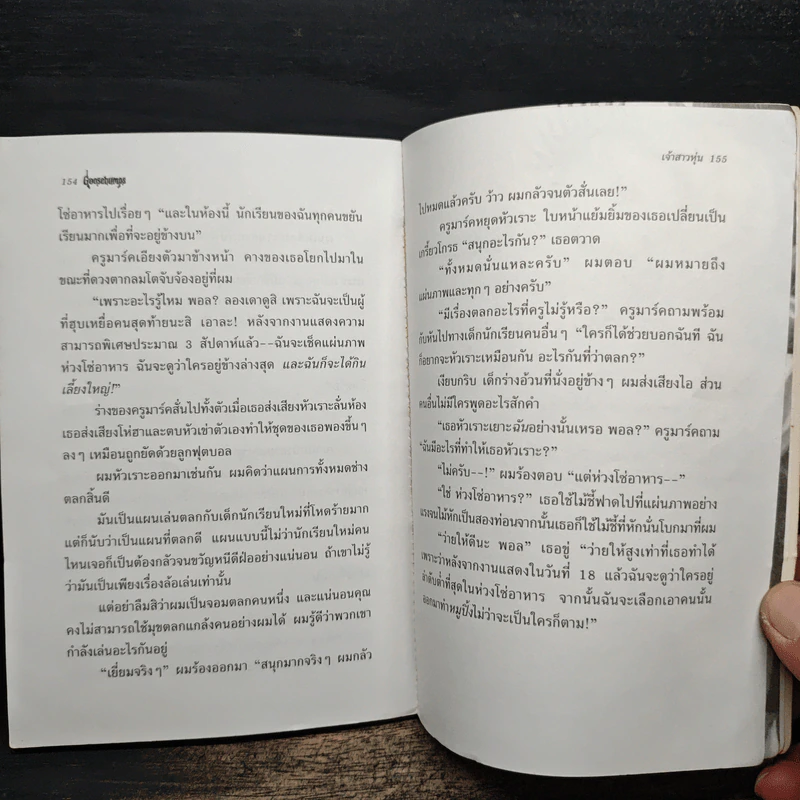 154 Goosebumps
โซ่อาหารไปเรื่อยๆ “และในห้องนี้ นักเรียนของฉันทุกคนขยัน
เรียนมากเพื่อที่จะอยู่ข้างบน”
ครูมาร์คเอียงตัวมาข้างหน้า คางของเธอโยกไปมาใน
ขณะที่ดวงตากลมโตจับจ้องอยู่ที่ผม
“เพราะอะไรรู้ไหม พอล? ลองเดาดูสิ เพราะฉันจะเป็นผู้
ที่ฮุบเหยื่อคนสุดท้ายนะสิ เอาละ! หลังจากงานแสดงความ
สามารถพิเศษประมาณ 3 สัปดาห์แล้ว--ฉันจะเช็คแผ่นภาพ
ห่วงโซ่อาหาร ฉันจะดูว่าใครอยู่ข้างล่างสุด และฉันก็จะได้กิน
เลี้ยงใหญ่!”
ร่างของครูมาร์คสั่นไปทั้งตัวเมื่อเธอส่งเสียงหัวเราะลั่นห้อง
เธอส่งเสียงโห่ฮาและตบหัวเข่าตัวเองทำให้ชุดของเธอพองขึ้นๆ
ลงๆ เหมือนถูกยัดด้วยลูกฟุตบอล
ผมหัวเราะออกมาเช่นกัน ผมคิดว่าแผนการทั้งหมดช่าง
ตลกสิ้นดี
มันเป็นแผนเล่นตลกกับเด็กนักเรียนใหม่ที่โหดร้ายมาก
แต่ก็นับว่าเป็นแผนที่ตลกดี แผนแบบนี้ไม่ว่านักเรียนใหม่คน
ไหนเจอก็เป็นต้องกลัวจนขวัญหนีดีฝ่ออย่างแน่นอน ถ้าเขาไม่รู้
ว่ามันเป็นเพียงเรื่องล้อเล่นเท่านั้น
แต่อย่าลืมสิว่าผมเป็นจอมตลกคนหนึ่ง และแน่นอนคุณ
คงไม่สามารถใช้มุขตลกแกล้งคนอย่างผมได้ ผมรู้ดีว่าพวกเขา
กำลังเล่นอะไรกันอยู่
“เยี่ยมจริงๆ” ผมร้องออกมา “สนุกมากจริงๆ ผมกลัว
เจ้าสาวหุ่น 155
ไปหมดแล้วครับ ว้าว ผมกลัวจนตัวสั่นเลย!”
ครูมาร์คหยุดหัวเราะ ใบหน้าแย้มยิ้มของเธอเปลี่ยนเป็น
เกรี้ยวโกรธ “สนุกอะไรกัน?” เธอตวาด
“ทั้งหมดนั่นแหละครับ” ผมตอบ “ผมหมายถึง
แผ่นภาพและทุกๆ อย่างครับ”
“มีเรื่องตลกอะไรที่ครูไม่รู้หรือ?” ครูมาร์คถามพร้อม
กับหันไปทางเด็กนักเรียนคนอื่นๆ “ใครก็ได้ช่วยบอกฉันที ฉัน
ก็อยากจะหัวเราะเหมือนกัน อะไรกันที่ว่าตลก?”
เงียบกริบ เด็กร่างอ้วนที่นั่งอยู่ข้างๆ ผมส่งเสียงไอ ส่วน
คนอื่นไม่มีใครพูดอะไรสักคำ
“เธอหัวเราะเยาะฉันอย่างนั้นเหรอ พอล?” ครูมาร์คถาม
“ฉันมีอะไรที่ทำให้เธอหัวเราะ?”
“ไม่ครับ--!” ผมร้องตอบ “แต่ห่วงโซ่อาหาร--”
“ใช่ ห่วงโซ่อาหาร?” เธอใช้ไม้ชี้ฟาดไปที่แผ่นภาพอย่าง
แรงจนไม้หักเป็นสองท่อนจากนั้นเธอก็ใช้ไม้ชี้ที่หักนั่นโบกมาที่ผม
“ว่ายให้ดีนะ พอล” เธอขู่ “ว่ายให้สูงเท่าที่เธอทำได้
เพราะว่าหลังจากงานแสดงในวันที่ 18 แล้วฉันจะดูว่าใครอยู่
ลำดับต่ำที่สุดในห่วงโซ่อาหาร จากนั้นฉันจะเลือกเอาคนนั้น
ออกมาทำหมูปิ้งไม่ว่าจะเป็นใครก็ตาม!”